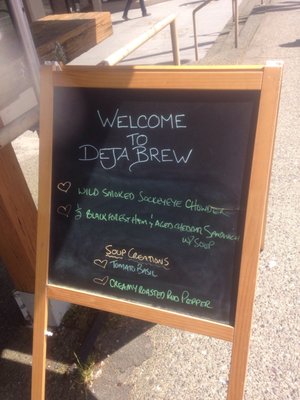 WELCOME
TO
DEJA BREW
WILD SMOKED SOCKEYEYE CHOWDER
½ BLACK FOREST HAM & AGED CHEDDAR SANDWICH
W/ SOUP
SOUP CREATIONS
TOMATO BASIL
CREAMY ROASTED RED PEPPER